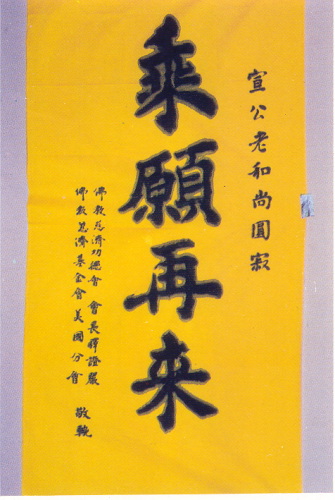 宣公老和尚圓寂
乘願再来
佛教慈濟功德會 會長釋證嚴
佛教慈濟基金會美國分會 敬輓